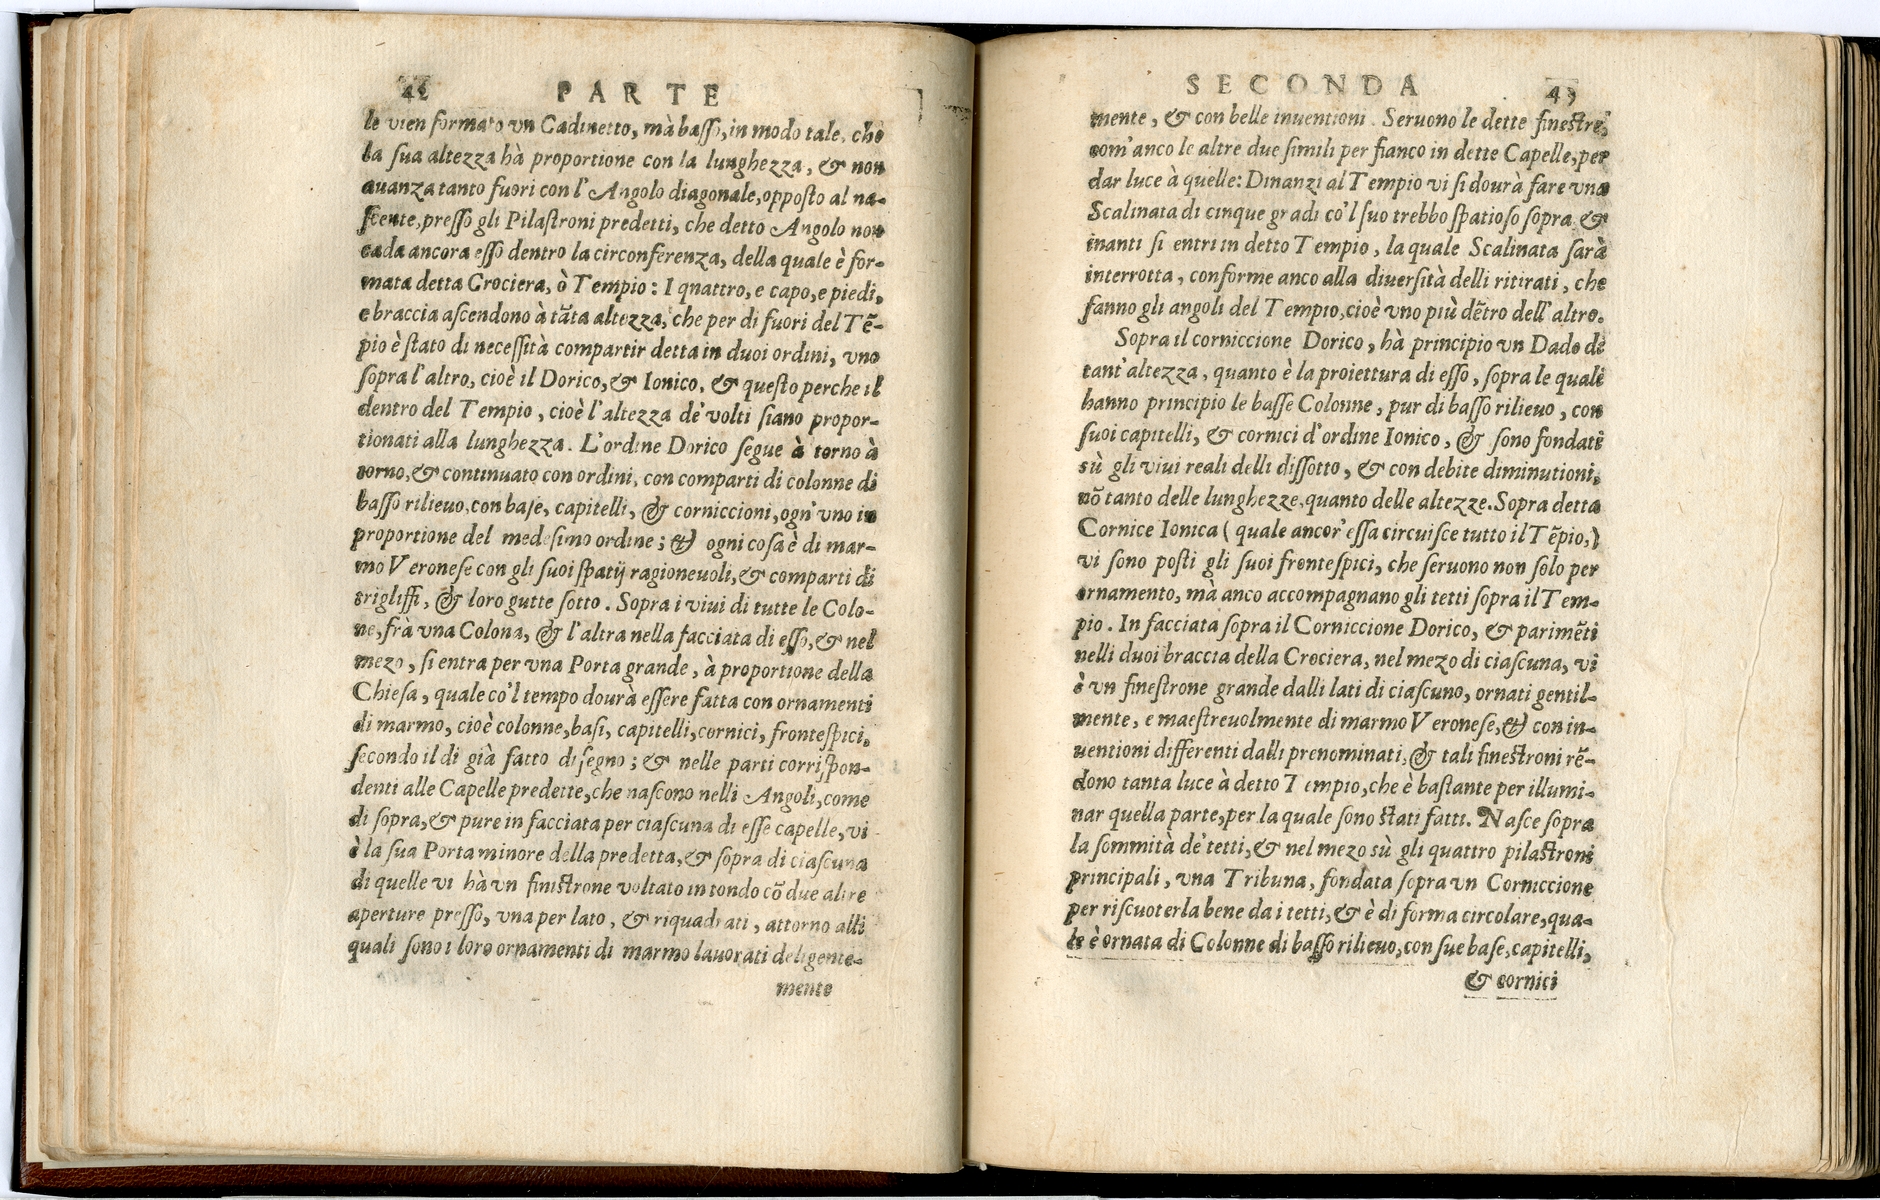 PARTE
le vien formato vn Cadinetto, mà basso, in modo tale, che
la sua altezza hà proportione con la lunghezza, & non
auanza tanto fuori con l'Angolo diagonale, opposto al na-
scente, presso gli Pilastroni predetti, che detto Angolo non
cada ancora esso dentro la circonferenza, della quale è for-
mata detta Crociera, ò Tempio: I quattro, e capo, e piedi,
e braccia ascendono à tãta altezza, che per di fuori del Tẽ-
pio è stato di necessità compartir detta in duoi ordini, vno
sopra l'altro, cioè il Dorico, & Ionico, & questo perche il
dentro del Tempio, cioè l'altezza de' volti siano propor-
tionati alla lunghezza. L'ordine Dorico segue à torno à
torno, & continuato con ordini, con comparti di colonne di
basso rilieuo, con base, capitelli, & corniccioni, ogn'vno in
proportione del medesimo ordine; & ogni cosa è di mar-
mo Veronese con gli suoi spatij ragioneuoli, & comparti di
trigliffi, & loro gutte sotto. Sopra i viui di tutte le Colo-
ne, frà vna Colona, & l'altra nella facciata di esso, & nel
mezo, si entra per vna Porta grande, à proportione della
Chiesa, quale co'l tempo dourà essere fatta con ornamenti
di marmo, cioè colonne, basi, capitelli, cornici, frontespici,
secondo il di già fatto disegno; & nelle parti corrispon-
denti alle Capelle predette, che nascono nelli Angoli, come
di sopra, & pure in facciata per ciascuna di esse capelle, vi
è la sua Porta minore della predetta, & sopra di ciascuna
di quelle vi hà vn finistrone voltato in tondo cõ due altre
aperture presso, vna per lato, & riquadrati, attorno alli
quali sono i loro ornamenti di marmo lauorati deligente-
mente
SECONDA
mente, & con belle inuentioni. Seruono le dette finestre,
com'anco le altre due simili per fianco in dette Capelle, per
dar luce à quelle: Dinanzi al Tempio vi si dourà fare vna
Scalinata di cinque gradi co'l suo trebbo spatioso sopra &
inanti si entri in detto Tempio, la quale Scalinata sarà
interrotta, conforme anco alla diuersità delli ritirati, che
fanno gli angoli del Tempio, cioè vno più dẽtro dell'altro.
Sopra il corniccione Dorico, hà principio vn Dado di
tant'altezza, quanto è la proiettura di esso, sopra le quali
hanno principio le basse Colonne, pur di basso rilieuo, con
suoi capitelli, & cornici d'ordine Ionico, & sono fondati
sù gli viui reali delli dissotto, & con debite diminutioni,
nõ tanto delle lunghezze, quanto delle altezze. Sopra detta
Cornice Ionica ( quale ancor'essa circuisce tutto il Tẽpio, )
vi sono posti gli suoi frontespici, che seruono non solo per
ornamento, mà anco accompagnano gli tetti sopra il Tem-
pio. In facciata sopra il Corniccione Dorico, & parimẽti
nelli duoi braccia della Crociera, nel mezo di ciascuna, vi
è vn finestrone grande dalli lati di ciascuno, ornati gentil-
mente, e maestreuolmente di marmo Veronese, & con in-
uentioni differenti dalli prenominati, & tali finestroni rẽ-
dono tanta luce à detto Tempio, che è bastante per illumi-
nar quella parte, per la quale sono stati fatti. Nasce sopra
la sommità de' tetti, & nel mezo sù gli quattro pilastroni
principali, vna Tribuna, fondata sopra vn Corniccione
per riscuoterla bene da i tetti, & è di forma circolare, qua-
le è ornata di Colonne di basso rilieuo, con sue base, capitelli,
& cornici